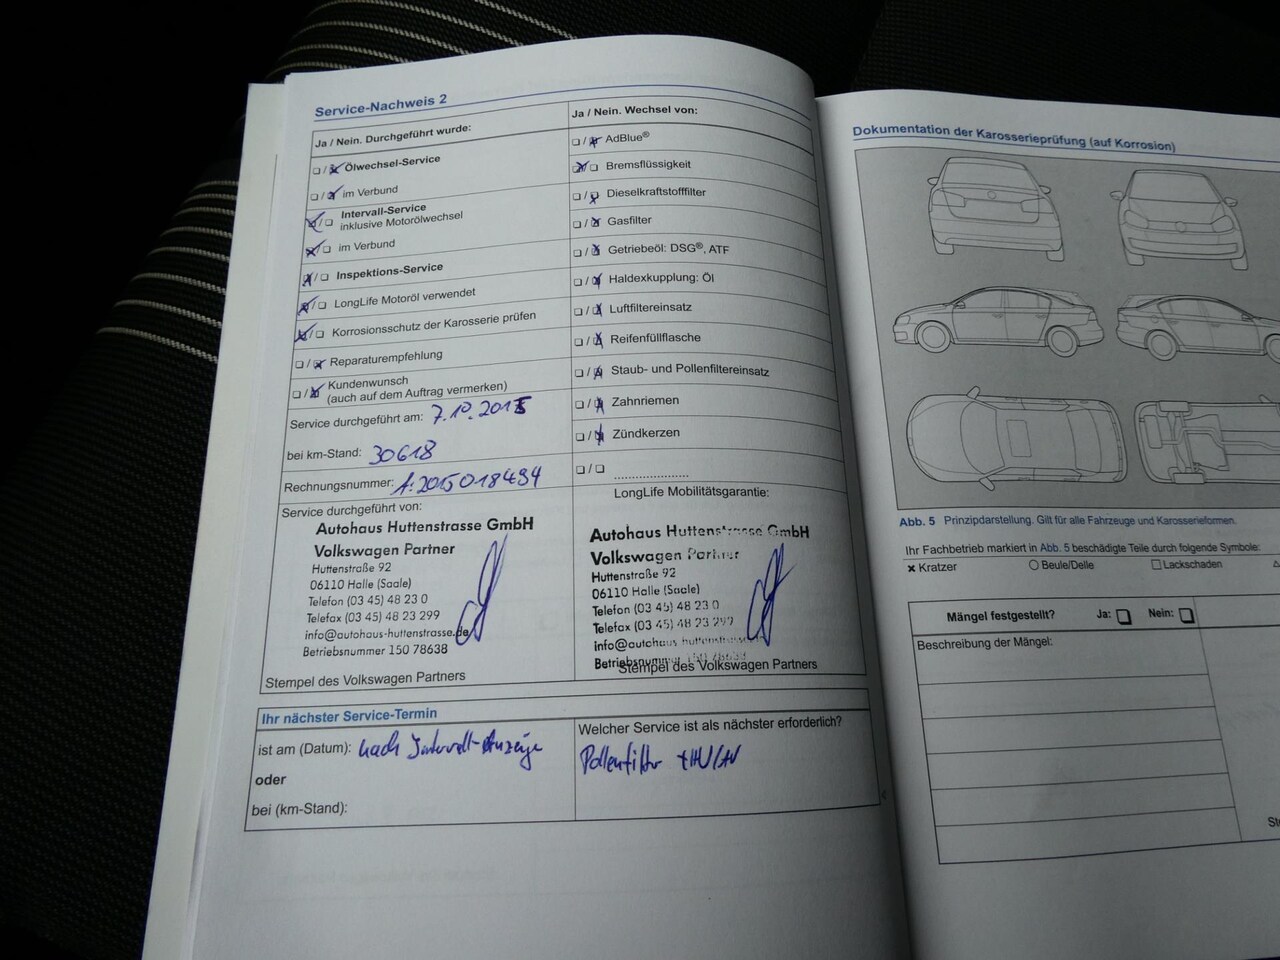 Service-Nachweis 2
Ja / Nein. Durchgeführt wurde:
Ölwechsel-Service
im Verbund
Intervall-Service
inklusive Motorölwechsel
im Verbund
Inspektions-Service
LongLife Motoröl verwendet
Korrosionsschutz der Karosserie prüfen
Reparaturempfehlung
Kundenwunsch
(auch auf dem Auftrag vermerken)
Service durchgeführt am: 7.10.2015
bei km-Stand: 30618
Rechnungsnummer: A:2015018494
Service durchgeführt von:
Autohaus Huttenstrasse GmbH
Volkswagen Partner
Huttenstraße 92
06110 Halle (Saale)
Telefon (03 45) 48 23 0
Telefax (03 45) 48 23 299
info@autohaus-huttenstrasse.de
Betriebsnummer 150 78638
Stempel des Volkswagen Partners
Ja / Nein. Wechsel von:
AdBlue®
Bremsflüssigkeit
Dieselkraftstofffilter
Gasfilter
Getriebeöl: DSG®, ATF
Haldexkupplung: Öl
Luftfiltereinsatz
Reifenfüllflasche
Staub- und Pollenfiltereinsatz
Zahnriemen
Zündkerzen
LongLife Mobilitätsgarantie:
Autohaus Huttenstrasse GmbH
Volkswagen Partner
Huttenstraße 92
06110 Halle (Saale)
Telefon (03 45) 48 23 0
Telefax (03 45) 48 23 299
info@autohaus-huttenstrasse
Betriebsnummer 150 78638
Stempel des Volkswagen Partners
Ihr nächster Service-Termin
ist am (Datum): nach Intervall-Anzeige
oder
bei (km-Stand):
Welcher Service ist als nächster erforderlich?
Pollenfilter + HU/AU
Dokumentation der Karosserieprüfung (auf Korrosion)
Abb. 5 Prinzipdarstellung. Gilt für alle Fahrzeuge und Karosserieformen.
Ihr Fachbetrieb markiert in Abb. 5 beschädigte Teile durch folgende Symbole:
Kratzer Beule/Delle Lackschaden
Mängel festgestellt? Ja: Nein:
Beschreibung der Mängel: